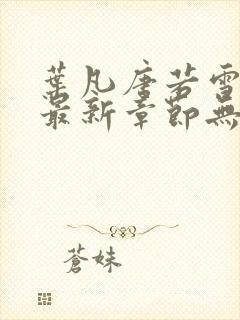 葉凡唐若雪
最新章節無
蒼妹